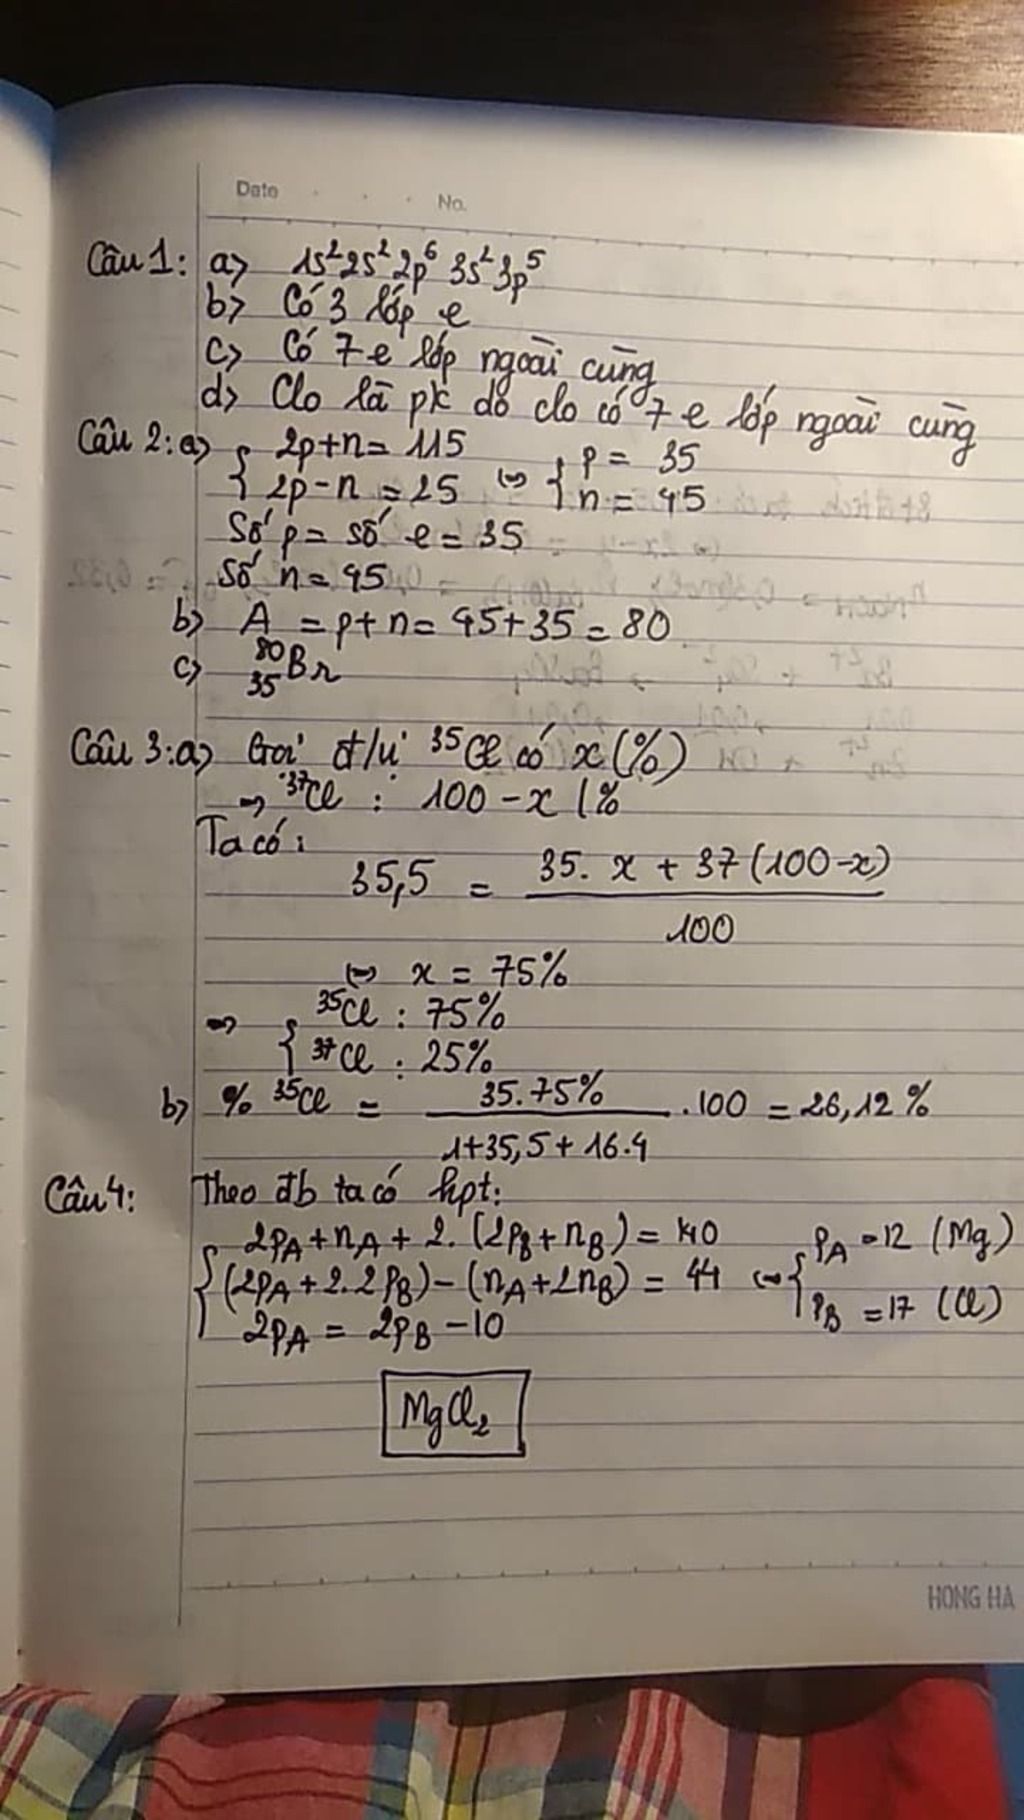 Date . . . No.
Câu 1: a) 1s²2s²2p⁶3s²3p⁵
b) Có 3 lớp e
c) Có 7 e lớp ngoài cùng
d) Clo là pk do clo có 7 e lớp ngoài cùng
Câu 2: a) { 2p+n = 115 p = 35
2p-n = 25 ⇔ { n = 45
Số p = số e = 35
Số n = 45
b) A = p+n = 45+35 = 80
c) ⁸⁰₃₅Br
Câu 3: a) Gọi đ/v ³⁵Cl có x (%)
⇒ ³⁷Cl : 100 - x (%
Ta có:
35,5 = 35. x + 37 (100-x)
100
⇔ x = 75%
⇒ { ³⁵Cl : 75%
³⁷Cl : 25%
b) % ³⁵Cl = 35.75% .100 = 26,12 %
1+35,5+16.4
Câu 4: Theo đb ta có hpt:
{ 2pA + nA + 2. (2pB + nB) = 140 pA = 12 (Mg)
(2pA + 2.2pB) - (nA + 2nB) = 44 ⇔ {
2pA = 2pB - 10 pB = 17 (Cl)
MgCl₂
HONG HA